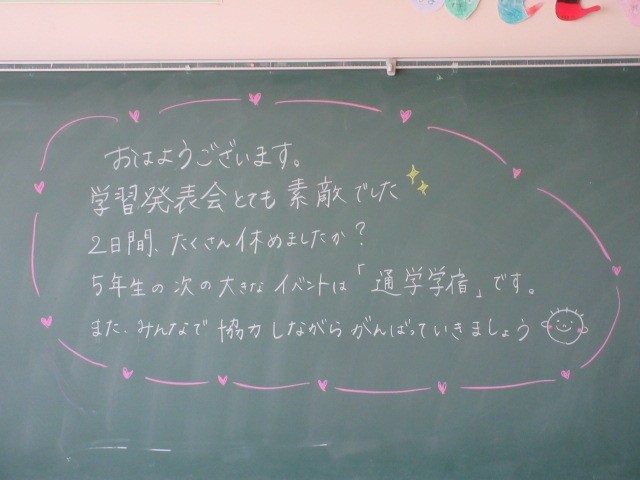 おはようございます。
学習発表会とても素敵でした
2日間、たくさん休めましたか？
5年生の次の大きなイベントは「通学学宿」です。
また、みんなで協力しながらがんばっていきましょう